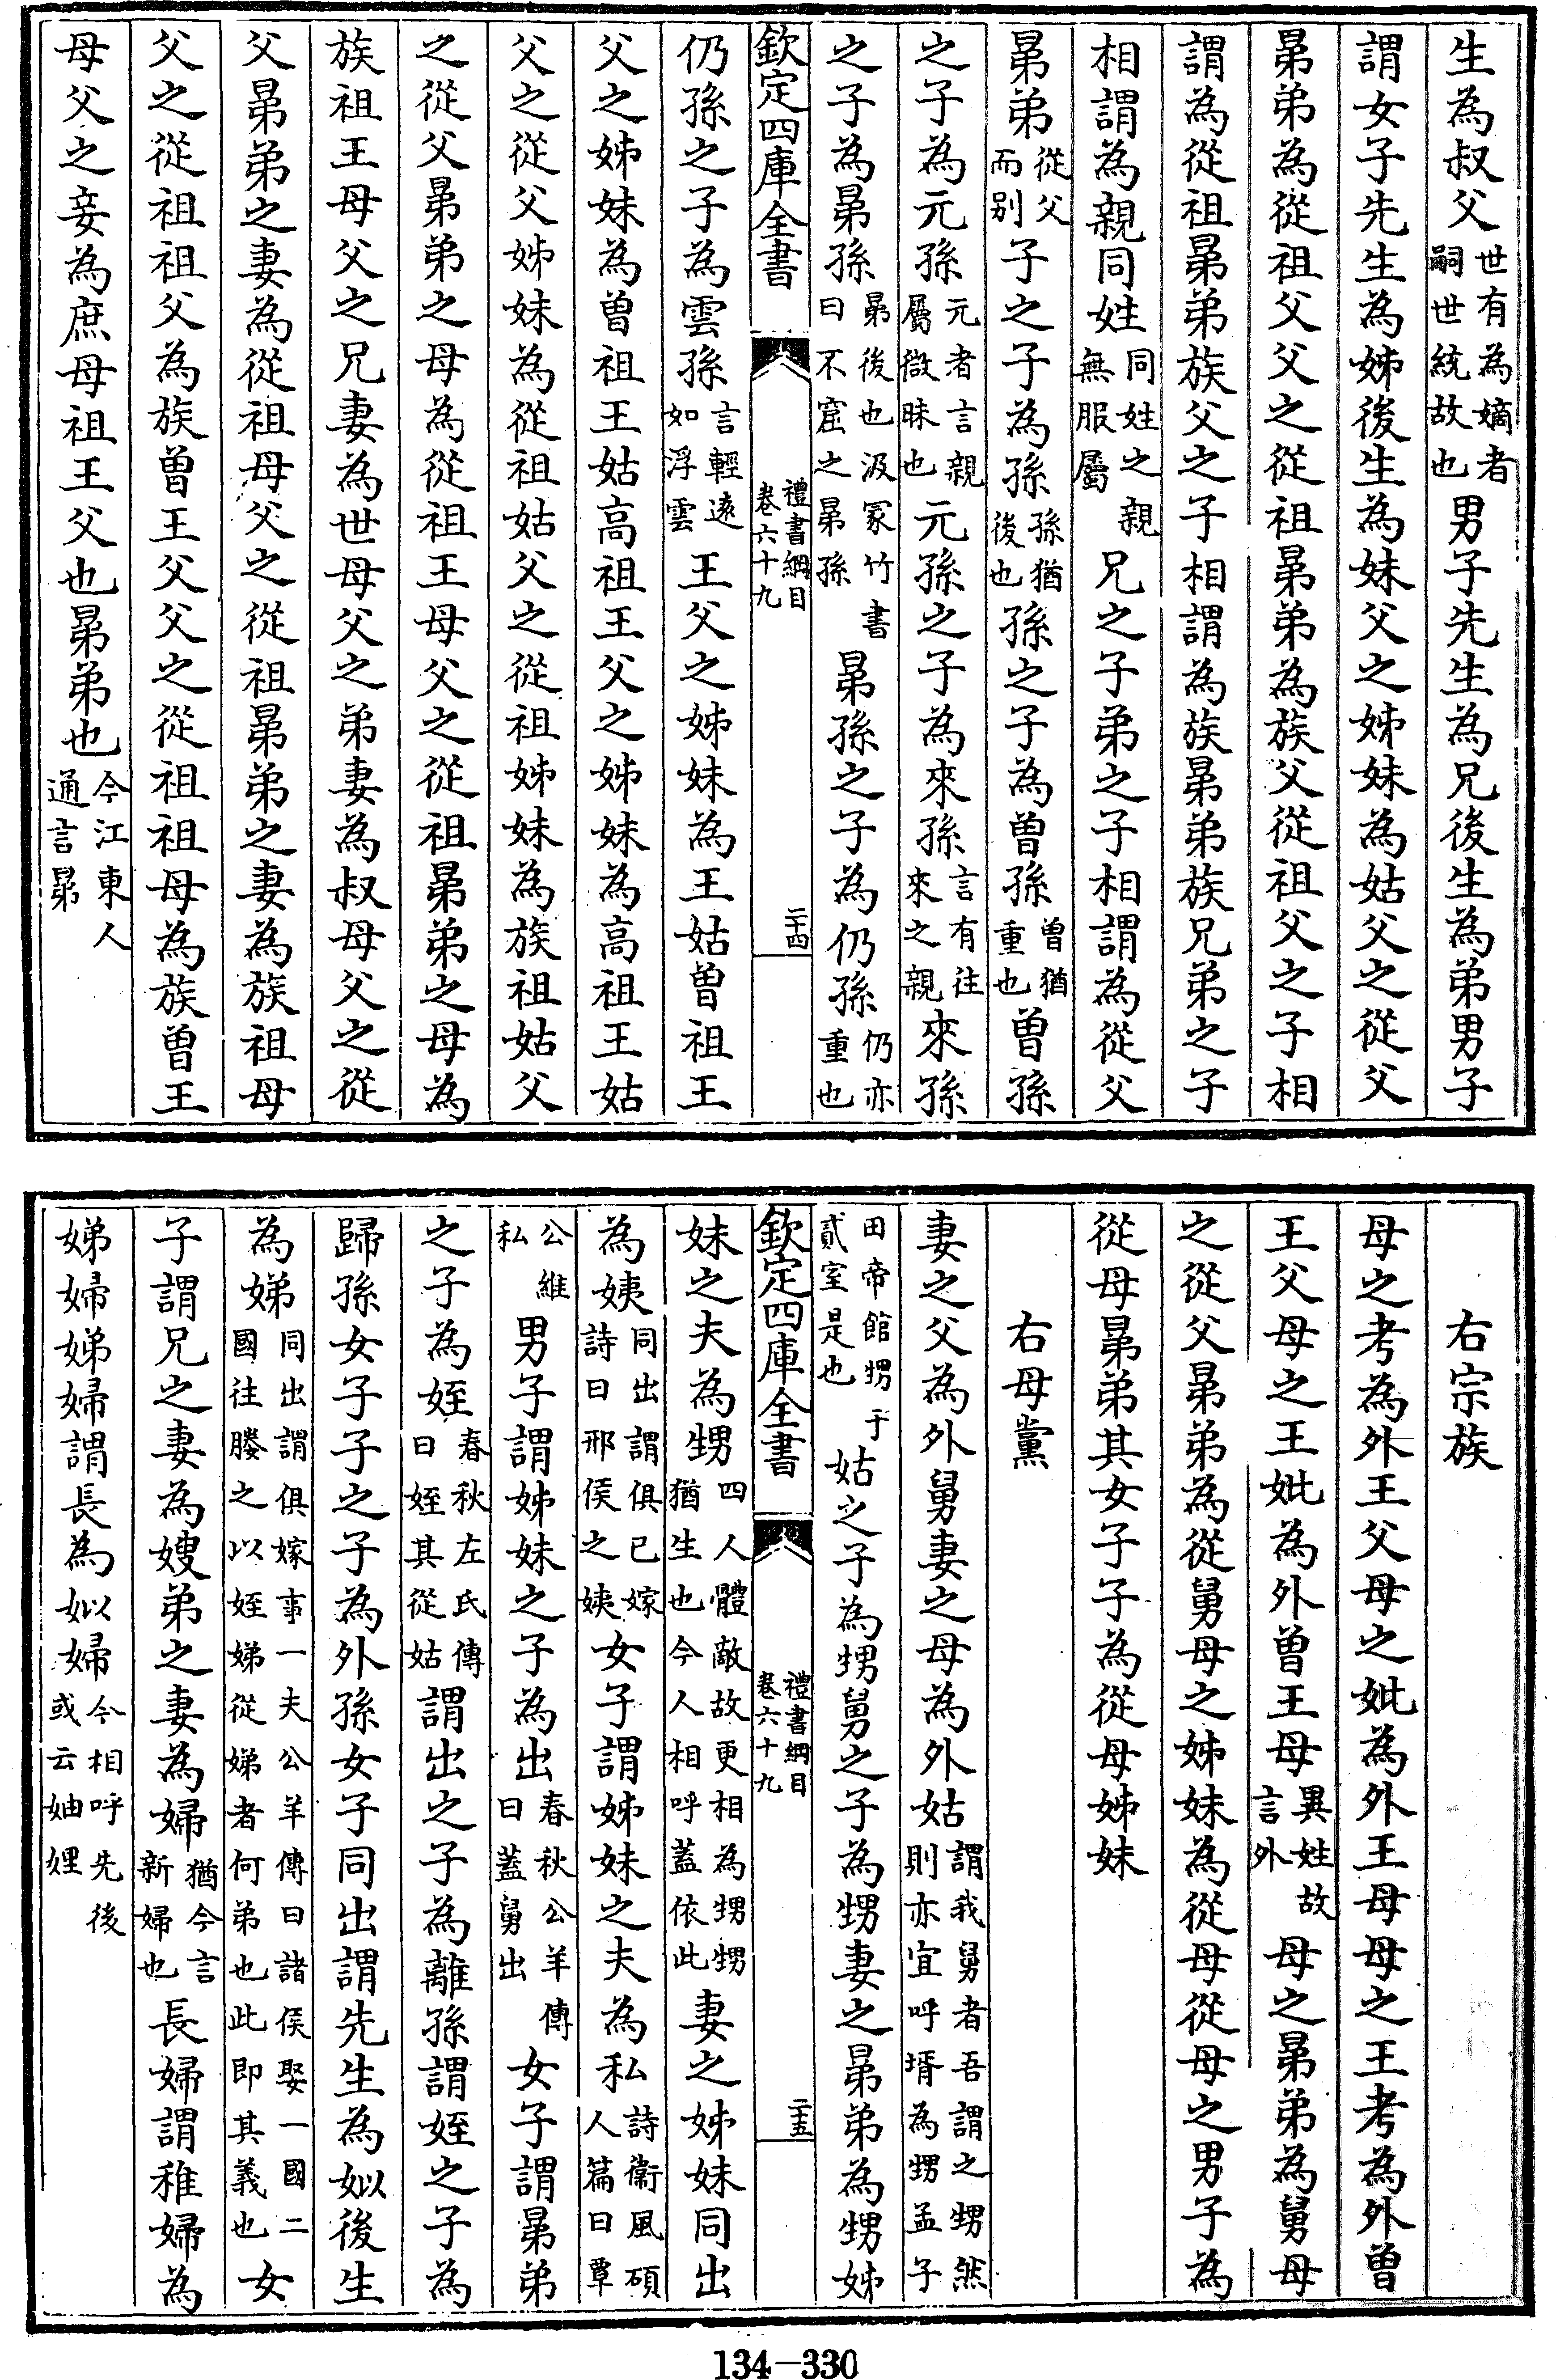 生為叔父世有為嫡者嗣世統故也男子先生為兄後生為弟男子
謂女子先生為姊後生為妹父之姊妹為姑父之從父
晜弟為從祖父父之從祖晜弟為族父從祖父之子相
謂為從祖晜弟族父之子相謂為族晜弟族兄弟之子
相謂為親同姓同姓之親無服屬兄之子弟之子相謂為從父
晜弟從父而别子之子為孫孫猶後也孫之子為曾孫曾猶重也曾孫
之子為元孫元者言親屬微昧也元孫之子為來孫言有往來之親來孫
之子為晜孫晜後也汲冢竹書曰不窋之晜孫晜孫之子為仍孫仍亦重也
欽定四庫全書
禮書綱目
卷六十九
二十四
仍孫之子為雲孫言輕遠如浮雲王父之姊妹為王姑曾祖王
父之姊妹為曾祖王姑高祖王父之姊妹為高祖王姑
父之從父姊妹為從祖姑父之從祖姊妹為族祖姑父
之從父晜弟之母為從祖王母父之從祖晜弟之母為
族祖王母父之兄妻為世母父之弟妻為叔母父之從
父晜弟之妻為從祖母父之從祖晜弟之妻為族祖母
父之從祖祖父為族曾王父父之從祖祖母為族曾王
母父之妾為庶母祖王父也晜弟也今江東人通言晜
右宗族
母之考為外王父母之妣為外王母母之王考為外曾
王父母之王妣為外曾王母異姓故言外母之晜弟為舅母
之從父晜弟為從舅母之姊妹為從母從母之男子為
從母晜弟其女子子為從母姊妹
右母黨
妻之父為外舅妻之母為外姑謂我舅者吾謂之甥然則亦宜呼壻為甥孟子
曰帝館甥于貳室是也姑之子為甥舅之子為甥妻之晜弟為甥姊
欽定四庫全書
禮書綱目
卷六十九
二十五
妹之夫為甥四人體敵故更相為甥甥猶生也今人相呼蓋依此妻之姊妹同出
為姨同出謂俱已嫁詩曰邢侯之姨女子謂姊妹之夫為私詩衞風碩人篇曰覃
公維私男子謂姊妹之子為出春秋公羊傳曰蓋舅出女子謂晜弟
之子為姪春秋左氏傳曰姪其從姑謂出之子為離孫謂姪之子為
歸孫女子子之子為外孫女子同出謂先生為姒後生
為娣同出謂俱嫁事一夫公羊傳曰諸侯娶一國二國往媵之以姪娣從娣者何弟也此即其義也女
子謂兄之妻為嫂弟之妻為婦猶今言新婦也長婦謂稚婦為
娣婦娣婦謂長為姒婦今相呼先後或云妯娌
134-330